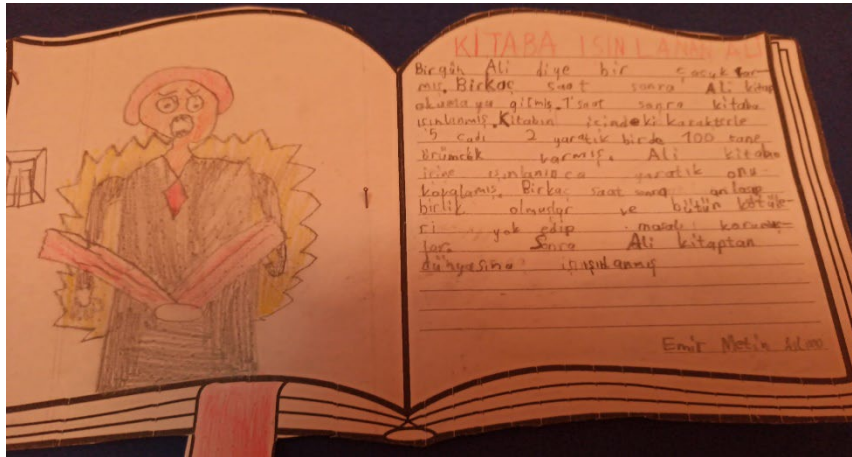 KİTABA IŞINLANAN ALİ
Birgün Ali diye bir çocuk var
mış. Birkaç saat sonra Ali kitap
okumaya gitmiş. 1 saat sonra kitaba
ışınlanmış. Kitabın içindeki karakterle
5 cadı 2 yaratık birde 100 tane
örümcek varmış. Ali kitabın
içine ışınlanınca yaratık onu
kovalamış. Birkaç saat sonra anlaşıp
birlik olmuşlar ve bütün kötüle
ri yok edip masalı korumuş
lar. Sonra Ali kitaptan
dünyasına ışınlanmış
Emir Metin